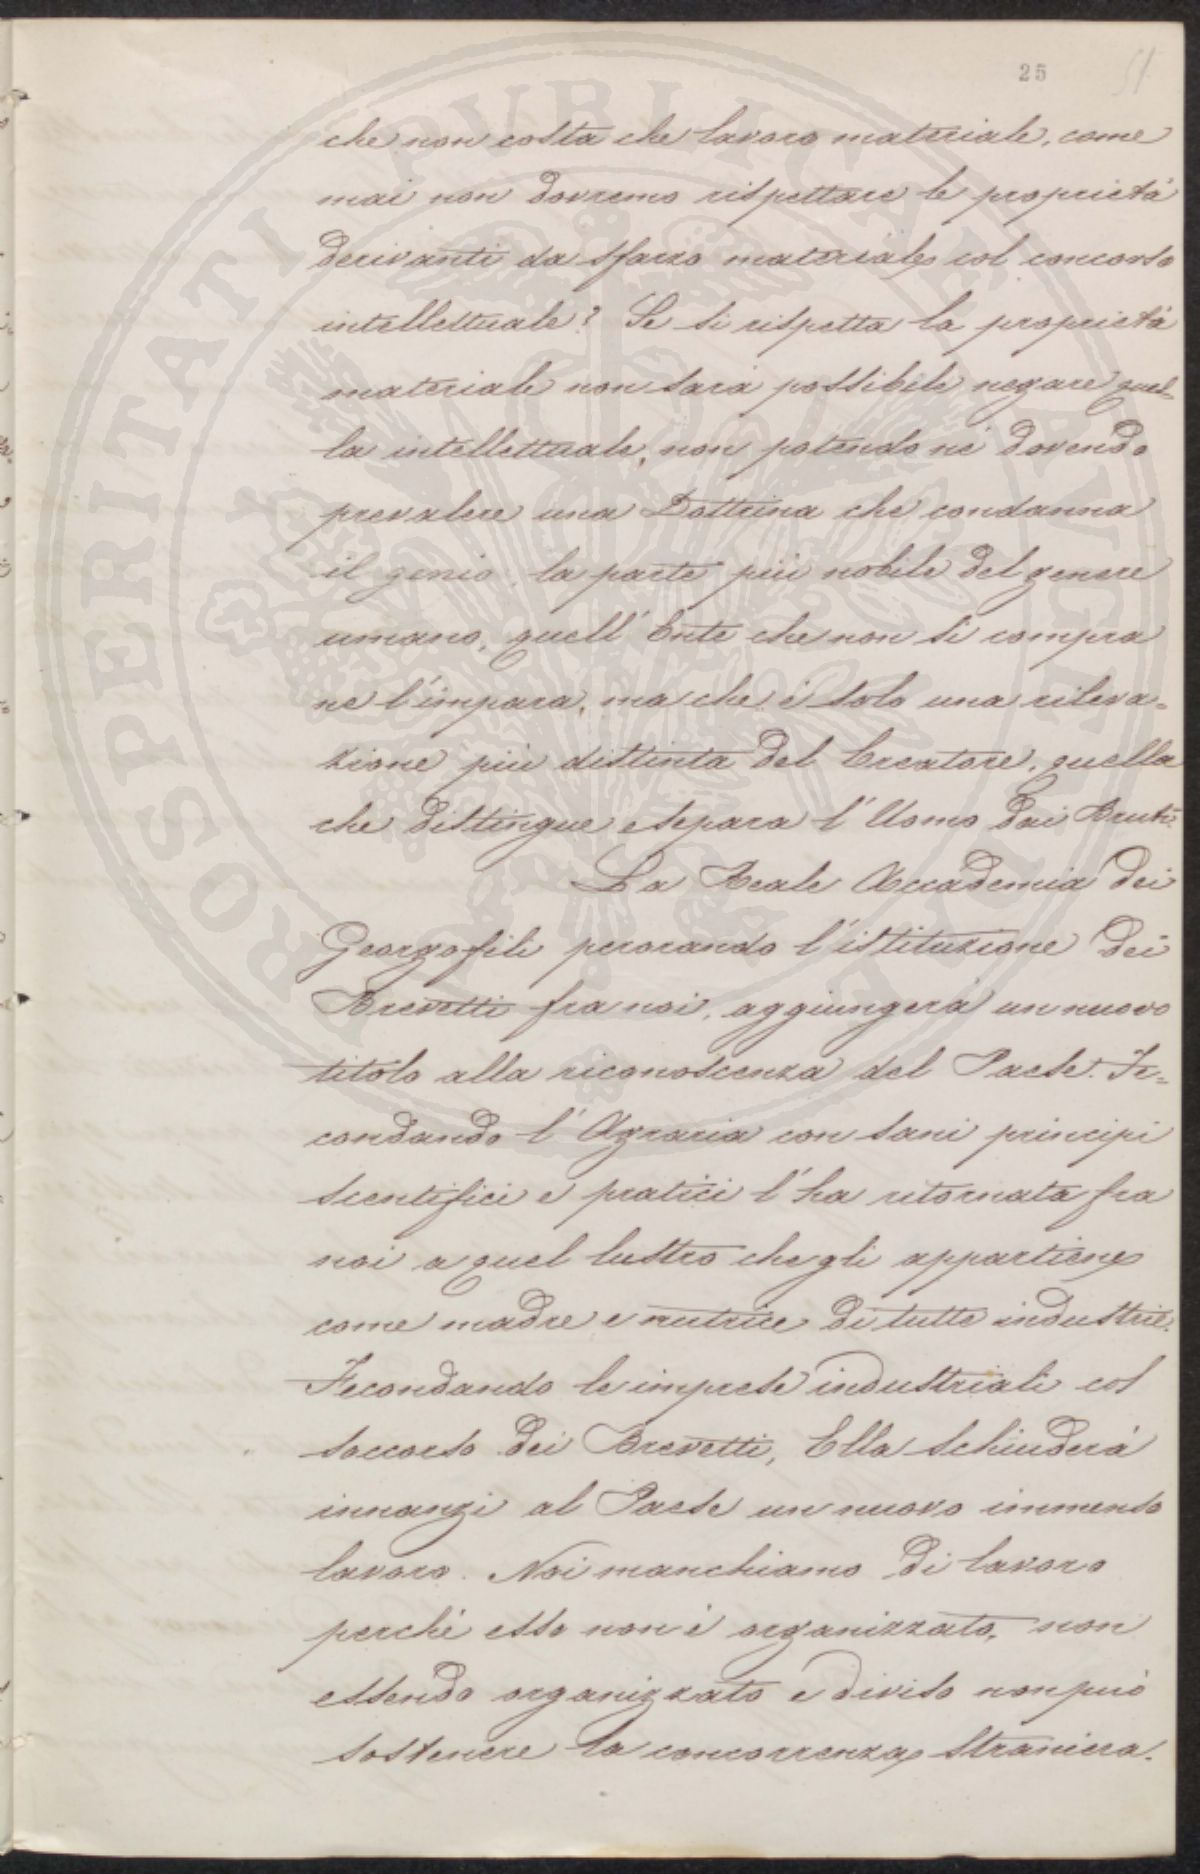 25
51
che non costa che lavoro materiale, come
mai non dovremo rispettare le proprietà
derivanti da sforzo materiale col concorso
intellettuale? Se si rispetta la proprietà
materiale non sarà possibile negare quel=
la intellettuale, non potendo nè dovendo
prevalere una Dottrina che condanna
il genio, la parte più nobile del genere
umano, quell'Ente che non si compra
ne l'impara, ma che è solo una rileva=
zione più distinta del Creatore, quella
che distingue e separa l'Uomo dai Bruti.
La Reale Accademia dei
Georgofili perorando l'istituzione dei
Brevetti fra noi, aggiungerà un nuovo
titolo alla riconoscenza del Paese. Fe=
condando l'Agraria con sani principi
scentifici e pratici l'ha ritornata fra
noi a quel lustro che gli appartiene
come madre e nutrice di tutte industrie.
Fecondando le imprese industriali col
soccorso dei Brevetti, Ella schiuderà
innanzi al Paese un nuovo immenso
lavoro. Noi manchiamo di lavoro
perchè esso non è organizzato, non
essendo organizzato e diviso non può
sostenere la concorrenza straniera.
PROSPERITATI PVBLICAE AVGENDAE